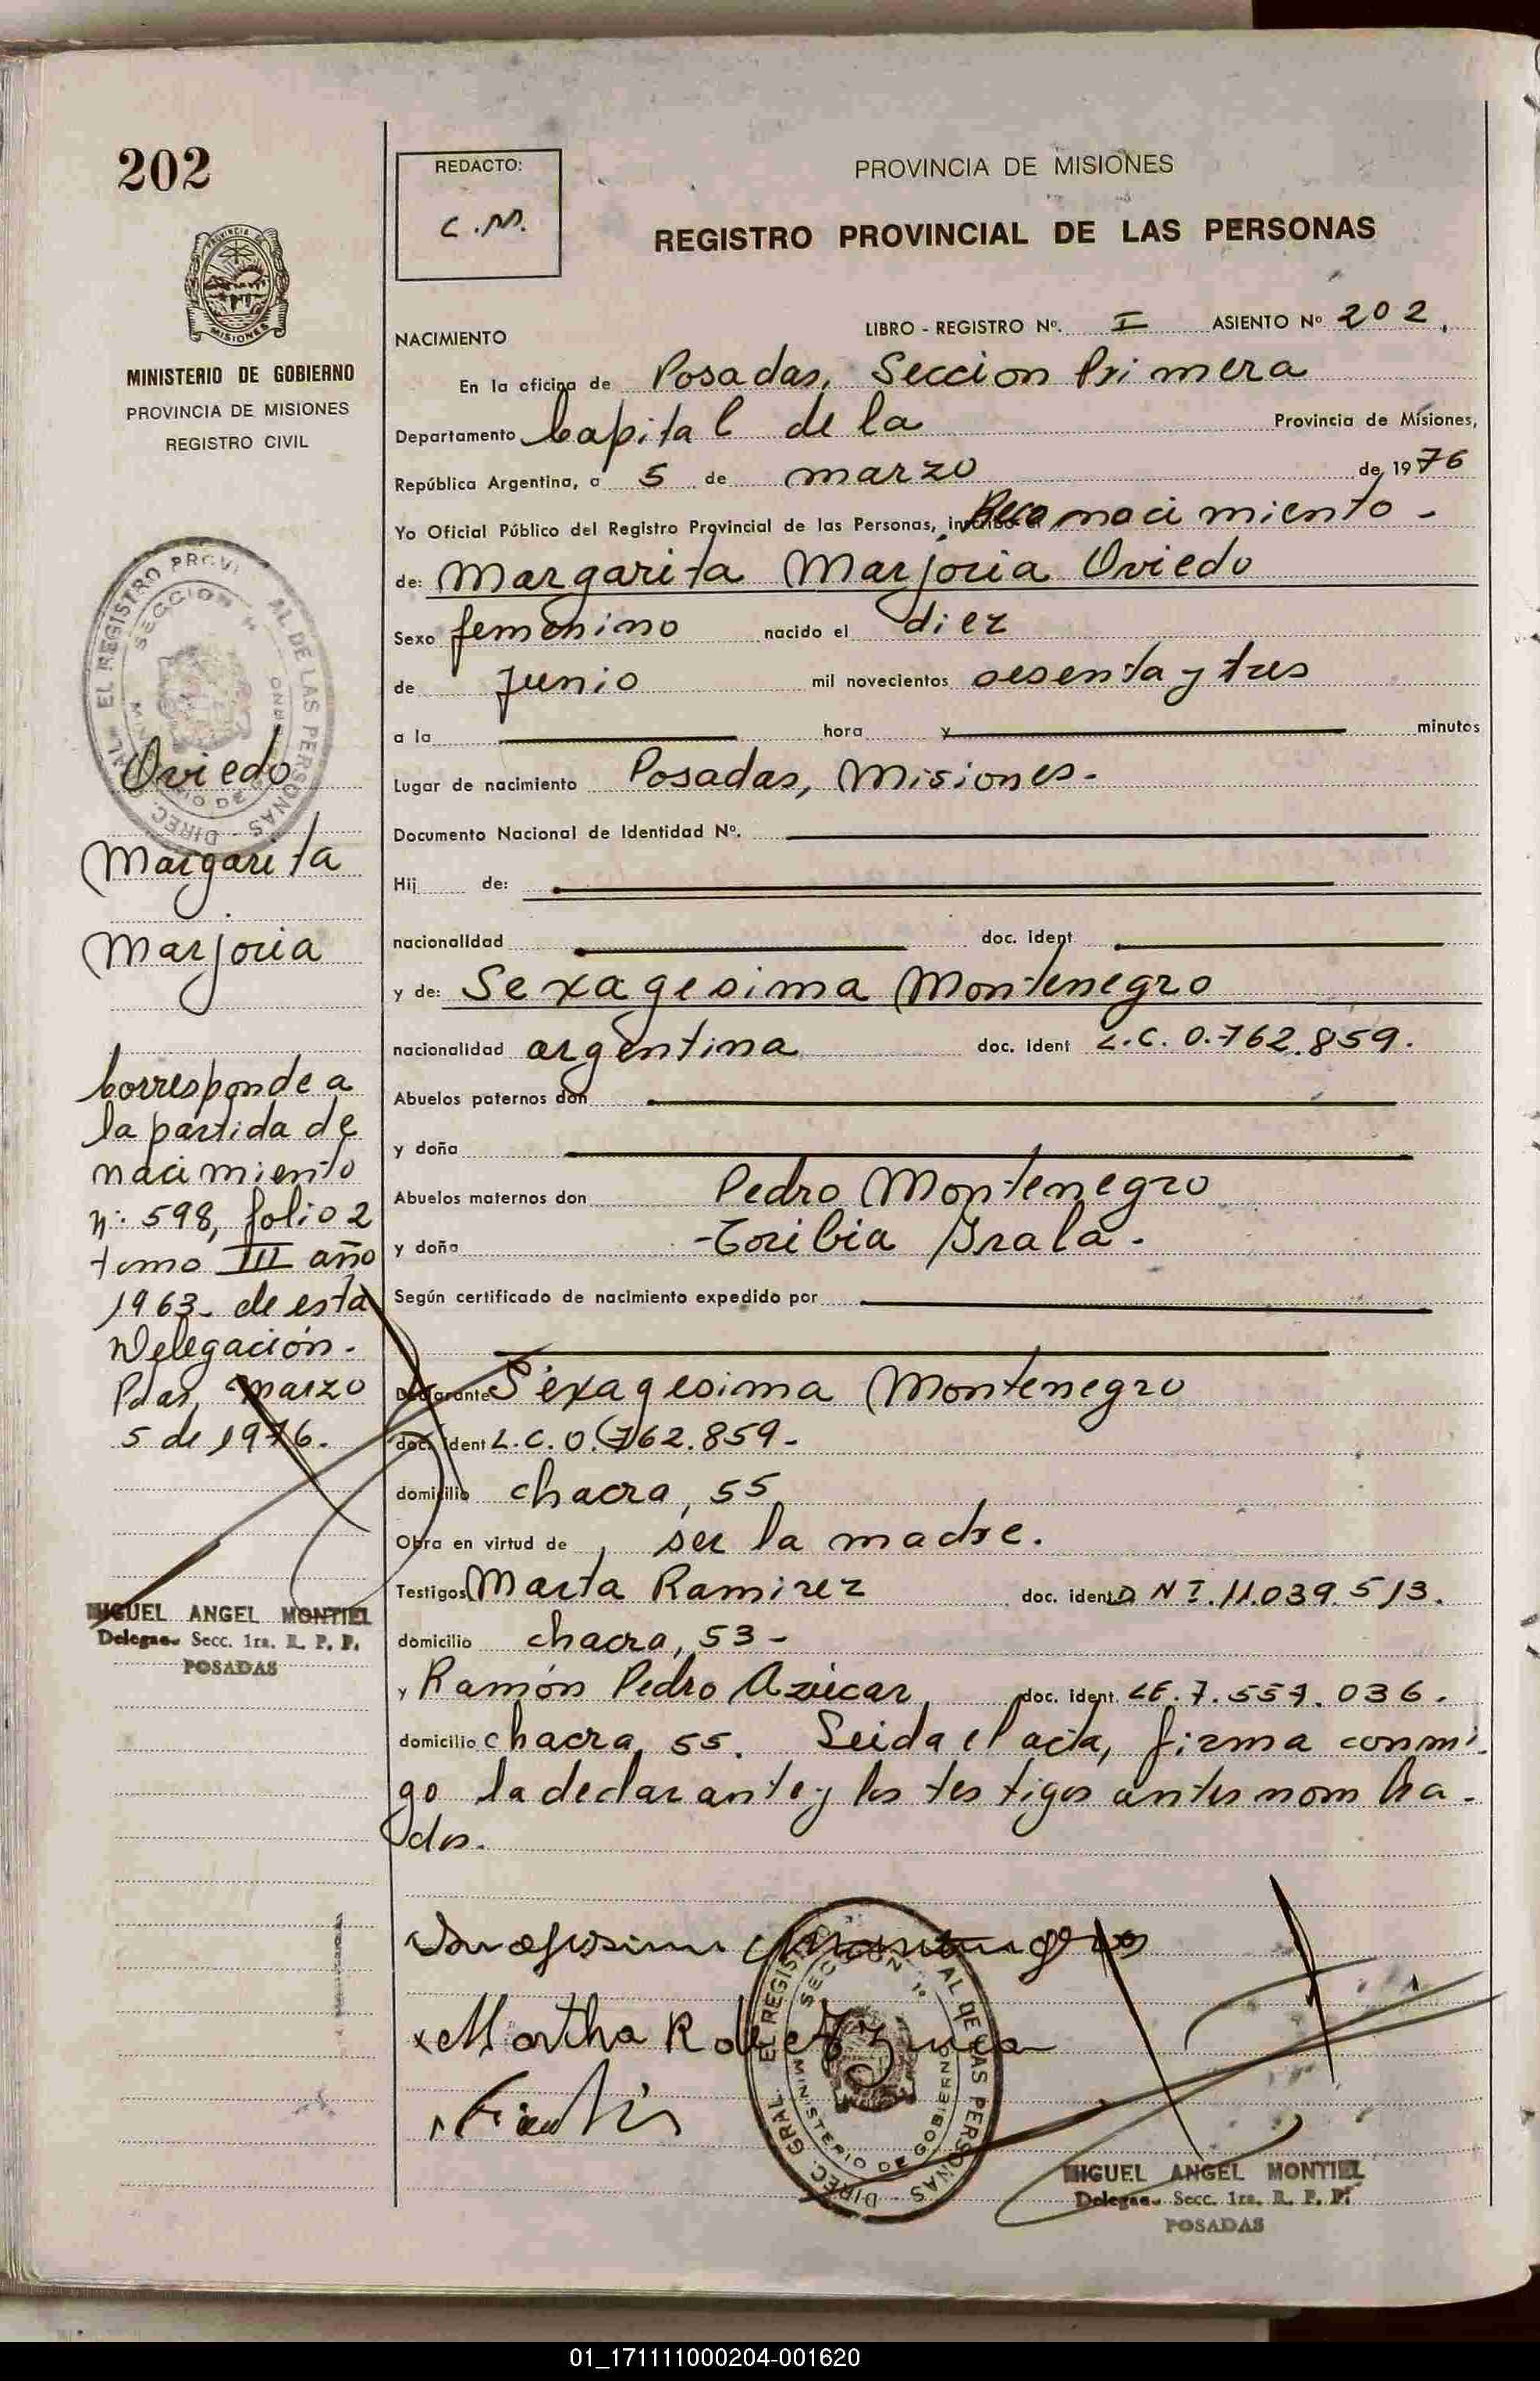 202
MINISTERIO DE GOBIERNO
PROVINCIA DE MISIONES
REGISTRO CIVIL
Oviedo
Margarita
Marjoria
Corresponde a
la partida de
nacimiento
Nº: 598, folio 2
tomo III año
1963. de esta
Delegación.
Pdas, marzo
5 de 1976.
MIGUEL ANGEL MONTIEL
Delegado Secc. 1ra. R. P. P.
POSADAS
REDACTO:
C.M.
PROVINCIA DE MISIONES
REGISTRO PROVINCIAL DE LAS PERSONAS
NACIMIENTO LIBRO - REGISTRO Nº. I ASIENTO Nº 202.
En la oficina de Posadas, Seccion Primera
Departamento Capital de la Provincia de Misiones,
República Argentina, a 5 de marzo de 1976
Yo Oficial Público del Registro Provincial de las Personas, inscribo el Reconocimiento -
de: Margarita Marjoria Oviedo
Sexo femenino nacido el diez
de Junio mil novecientos sesenta y tres
a la hora y minutos
Lugar de nacimiento Posadas, Misiones-
Documento Nacional de Identidad Nº.
Hij de:
nacionalidad doc. ident
y de: Sexagesima Montenegro
nacionalidad argentina doc. ident L.C. 0.762.859.
Abuelos paternos don
y doña
Abuelos maternos don Pedro Montenegro
y doña Toribia Irala.
Según certificado de nacimiento expedido por
Declarante Sexagesima Montenegro
doc. ident L.C. 0.762.859-
domicilio chacra, 55
Obra en virtud de ser la madre.
Testigos Marta Ramirez doc. ident D N I. 11.039.513.
domicilio chacra, 53-
y Ramón Pedro Azúcar, doc. ident. LE. 7.554.036.
domicilio chacra, 55. Leida el acta, firma conmi
go la declarante y los testigos antes nombra-
dos.
Montenegro
Martha R de
DIREC. GRAL. EL REGISTRO PROVINCIAL DE LAS PERSONAS
SECCION 1º
MINISTERIO DE GOBIERNO
MIGUEL ANGEL MONTIEL
Delegado Secc. 1ra. R. P. P.
POSADAS
01_171111000204-001620